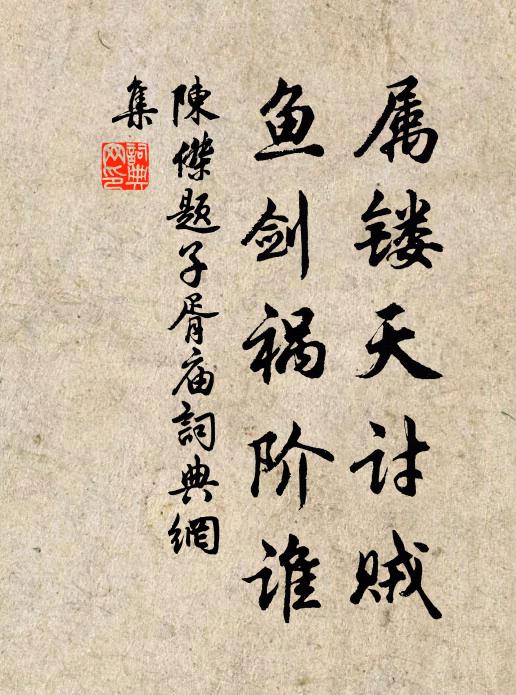 属镂天讨贼
鱼剑祸阶谁
陳傑题子胥庙詞典網
集
詞典
网印